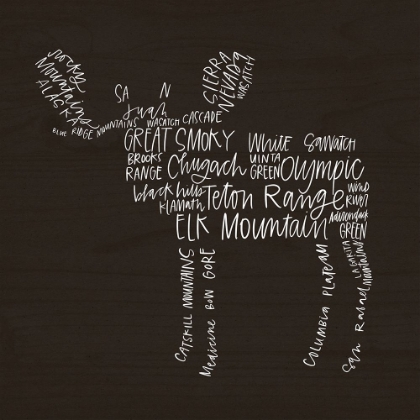 Rocky
Mountains
ALASKA
SIERRA
NEVADA
WASATCH
SA N
Juan
BLUE RIDGE MOUNTAINS
WACATCH CASCADE
GREAT SMOKY
White SAWATCH
BROOKS
RANGE
Chugach
UINTA
GREEN
Olympic
black hills
KLAMATH
Teton Range
WIND
RIVER
Adirondack
GREEN
ELK Mountain
CATSKILL MOUNTAINS
Medicine BOW GORE
COLUMBIA PLATEAU
LA GARITA
Mountains
San Rafael